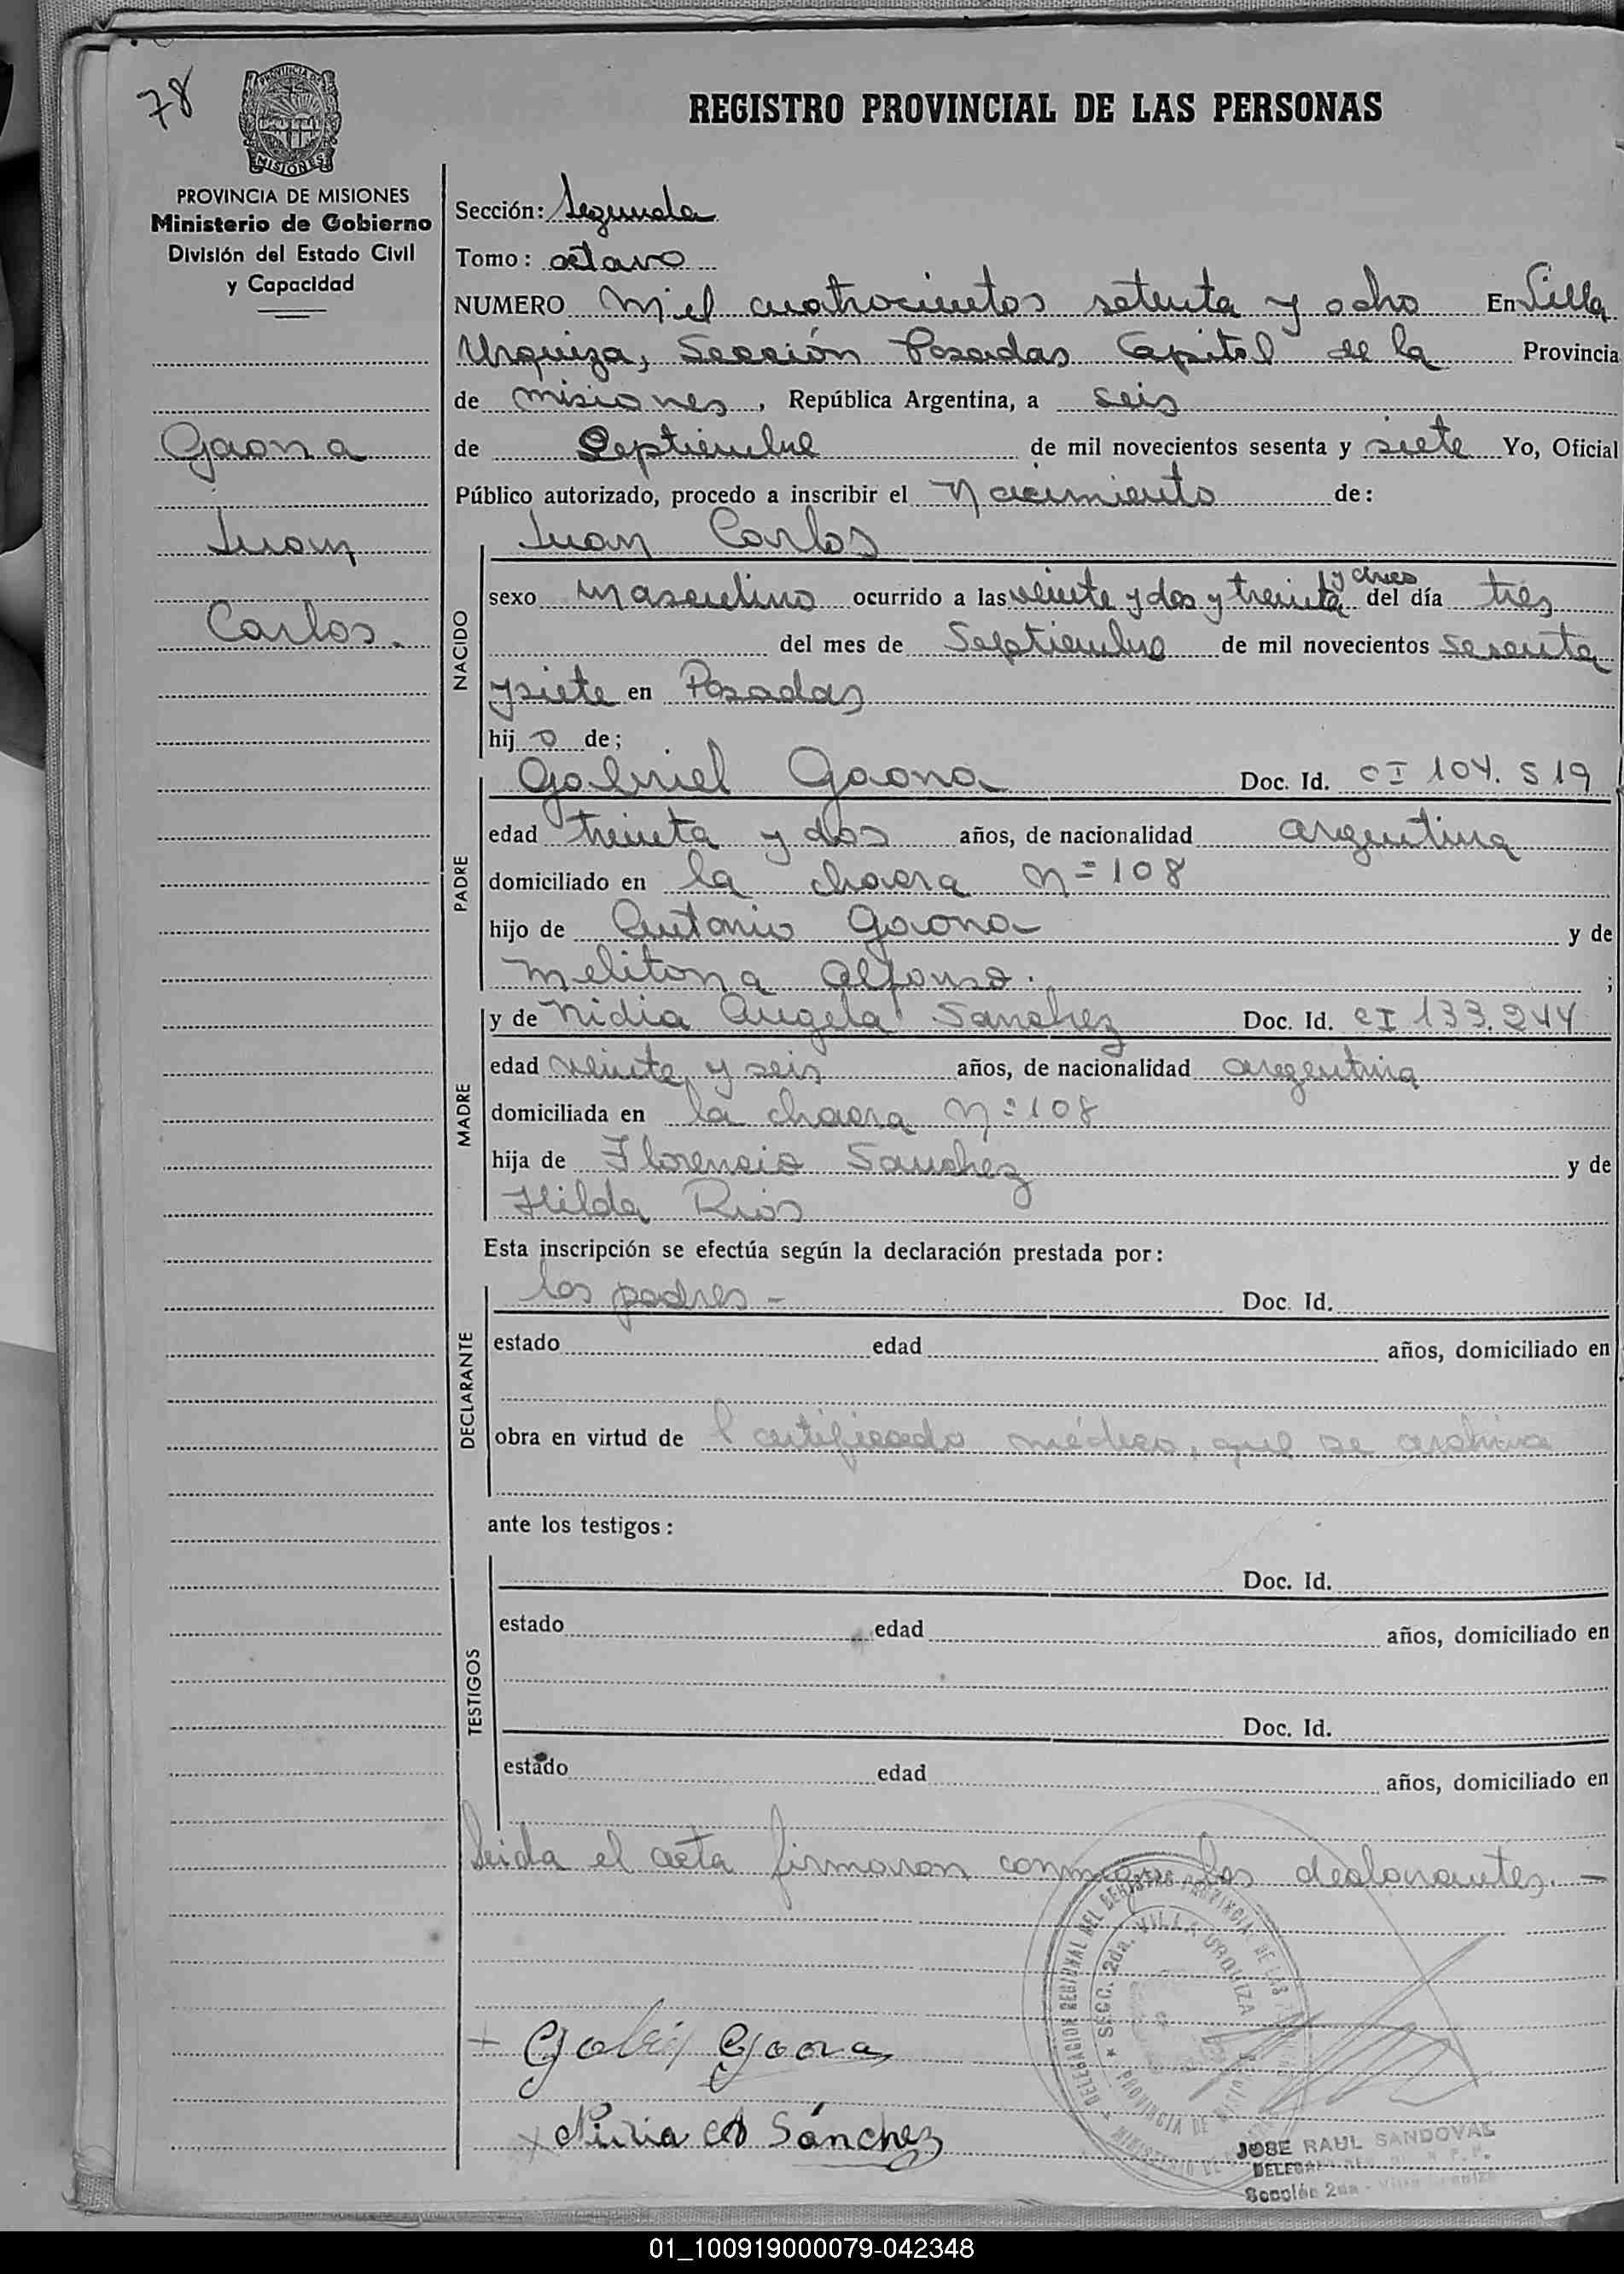 78
PROVINCIA DE MISIONES
MISIONES
REGISTRO PROVINCIAL DE LAS PERSONAS
PROVINCIA DE MISIONES
Ministerio de Gobierno
División del Estado Civil
y Capacidad
Gaona
Juan
Carlos.
Sección: Segunda
Tomo: octavo
NUMERO Mil cuatrocientos setenta y ocho En Villa
Urquiza, Sección Posadas Capital de la Provincia
de misiones, República Argentina, a seis
de Septiembre de mil novecientos sesenta y siete Yo, Oficial
Público autorizado, procedo a inscribir el Nacimiento de:
NACIDO
Juan Carlos
y cinco
sexo masculino ocurrido a las veinte y dos y treinta del día tres
del mes de Septiembre de mil novecientos sesenta
y siete en Posadas
hijo de;
PADRE
Gabriel Gaona Doc. Id. CI 104.519
edad treinta y dos años, de nacionalidad argentina
domiciliado en la chacra Nº 108
hijo de Antonio Gaona y de
Melitona Alfonso. ;
MADRE
y de Nidia Angela Sanchez Doc. Id. CI 133.244
edad veinte y seis años, de nacionalidad argentina
domiciliada en la chacra Nº 108
hija de Florencio Sanchez y de
Hilda Rios
Esta inscripción se efectúa según la declaración prestada por:
DECLARANTE
los padres - Doc. Id.
estado edad años, domiciliado en
obra en virtud de l certificado médico, que se archiva
ante los testigos:
TESTIGOS
Doc. Id.
estado edad años, domiciliado en
Doc. Id.
estado edad años, domiciliado en
Leida el acta firmaron conmigo los declarantes. -
DELEGACION REGIONAL DEL REGISTRO PROVINCIAL DE LAS
SECC. 2da. VILLA URQUIZA
PROVINCIA DE
Gaona
A Sánchez
JOSE RAUL SANDOVAL
Sección 2da - Villa Urquiza
01_100919000079-042348